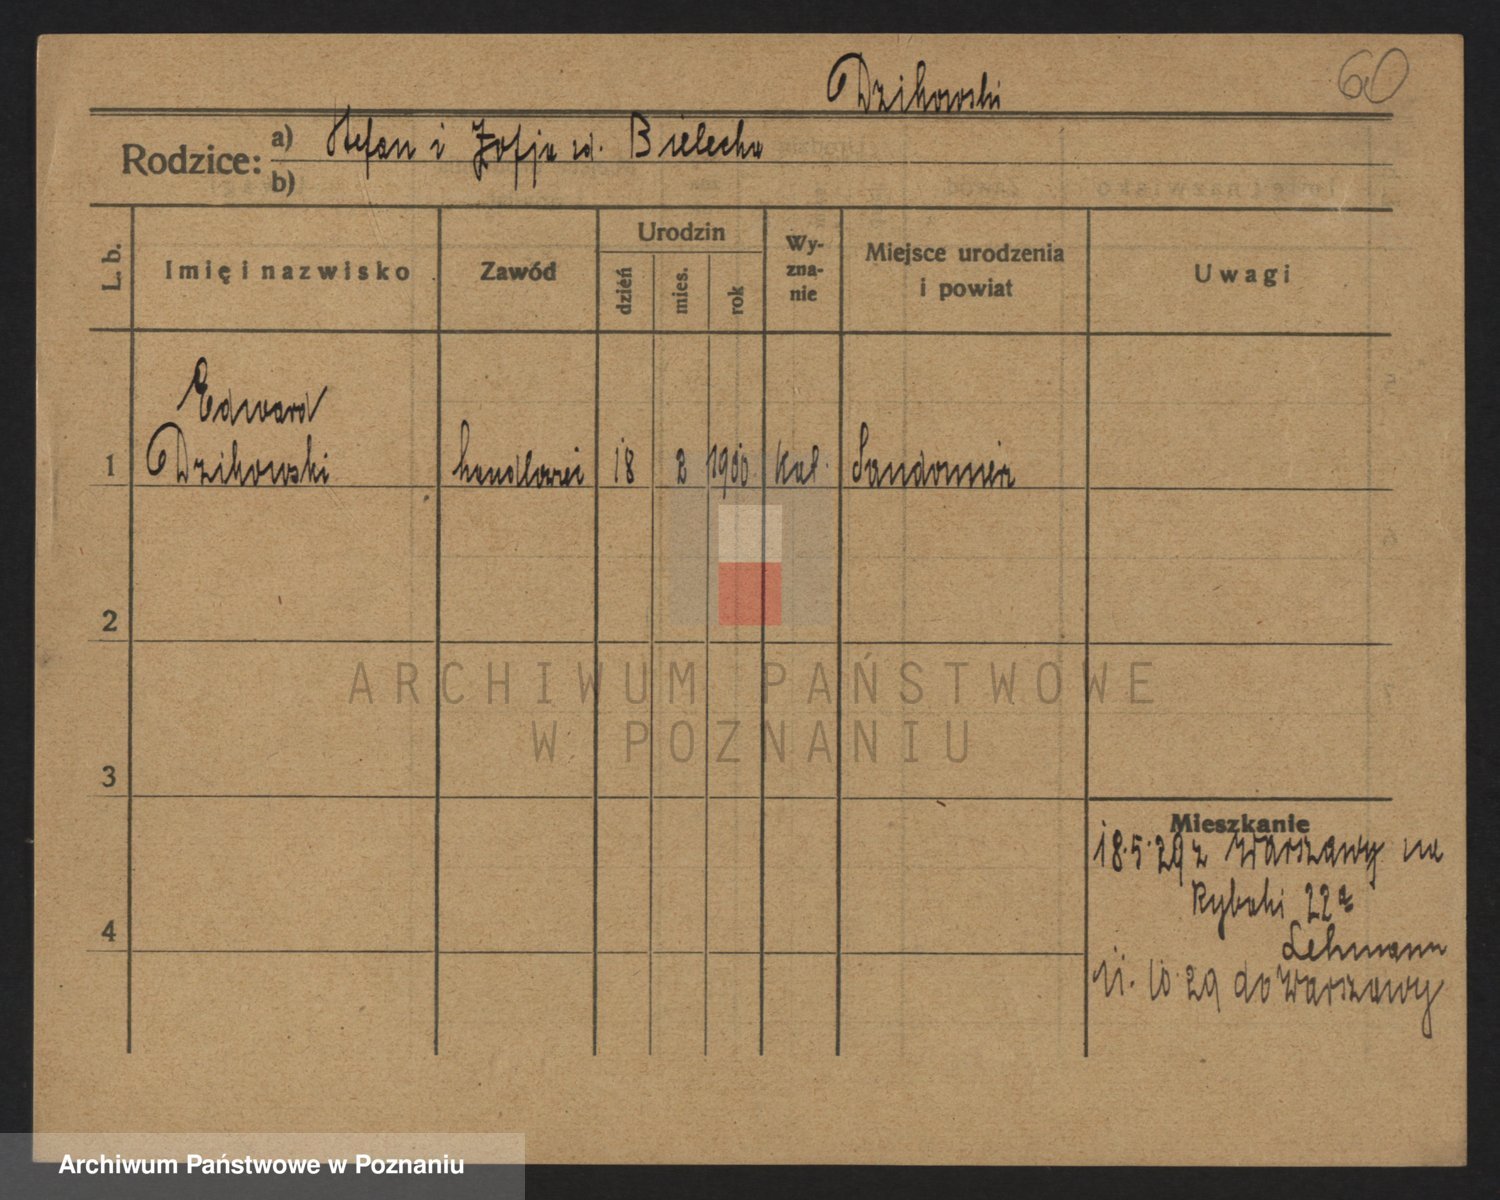 Dzikowski
60
Rodzice: a) Stefan i Zofja zd. Bielecka
b)
L. b. Imię i nazwisko Zawód Urodzin dzień mies. rok Wy-zna-nie Miejsce urodzenia i powiat Uwagi
Edward
1 Dzikowski 18 8 1900 kat. Sandomierz
2
ARCHIWUM PAŃSTWOWE
W POZNANIU
3
Mieszkanie
18.5.29 z Warszawy na
Rybaki 22a
4
Lehmann
11.10.29 do Warszawy
Archiwum Państwowe w Poznaniu